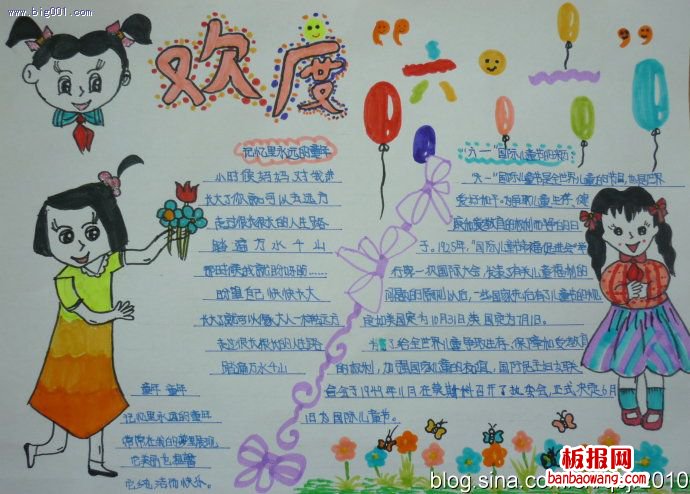 www.big001.com
欢度“六一”
记忆里永远的童年
小时候妈妈对我讲
长大了你就可以去远方
走过很长很长的人生路
踏遍万水千山
那时候我就总好的……
盼望自己快快长大
长大了就可以像大人一样去远方
走过很长很长的人生路
踏遍万水千山
童年 童年
记忆里永远的童年
常常在我的梦里展现
它美丽也温馨
它纯洁而快乐。
“六一”国际儿童节的来历
“六一”国际儿童节是全世界儿童的节日,也是世界
于。1925年,“国际儿童幸福促进会”举
行第一次国际大会,发表了有关儿童福利的
问题的原则以后,一些国家先后有了儿童节的规
定如美国定为10月31日英国定为7月1日。
为了给全世界儿童争取生存、保障和受教育
的权利,加强国际儿童的友谊,国际民主妇女联
合会于1949年11月在莫斯科召开了执委会,正式决定6月
1日为国际儿童节。
blog.sina.com.cn
2010
板报网
banbaowang.com